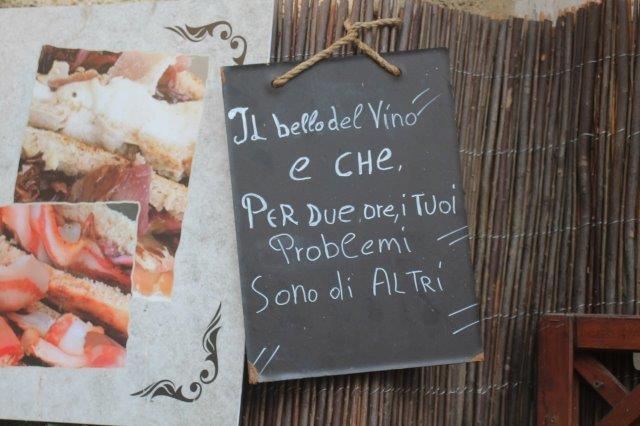 IL bello del Vino
e CHE,
PER DUE ore, i TUOI
Problemi
Sono di ALTRi